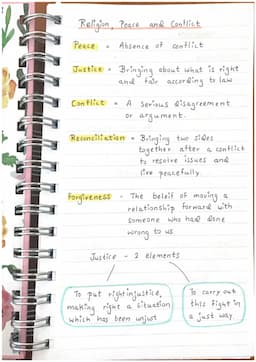 Religion, Peace and Conflict
Peace = Absence of conflict
Justice = Bringing about what is right
and fair according to law
Conflict = A serious disagreement
or argument.
Reconciliation = Bringing two sides
together after a conflict
to resolve issues and
live peacefully.
Forgiveness - The beleif of moving a
relationship forward with
someone who had done
wrong to us
Justice - 2 elements
To put right injustice,
making right a situation
which has been unjust
To carry out
this fight in
a just way.